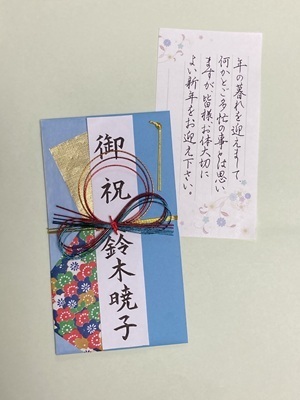 年の暮れを迎えまして
何かとご多忙の事とは思い
ますが皆様お体大切に
よい新年をお迎え下さい。
御祝
鈴木暁子